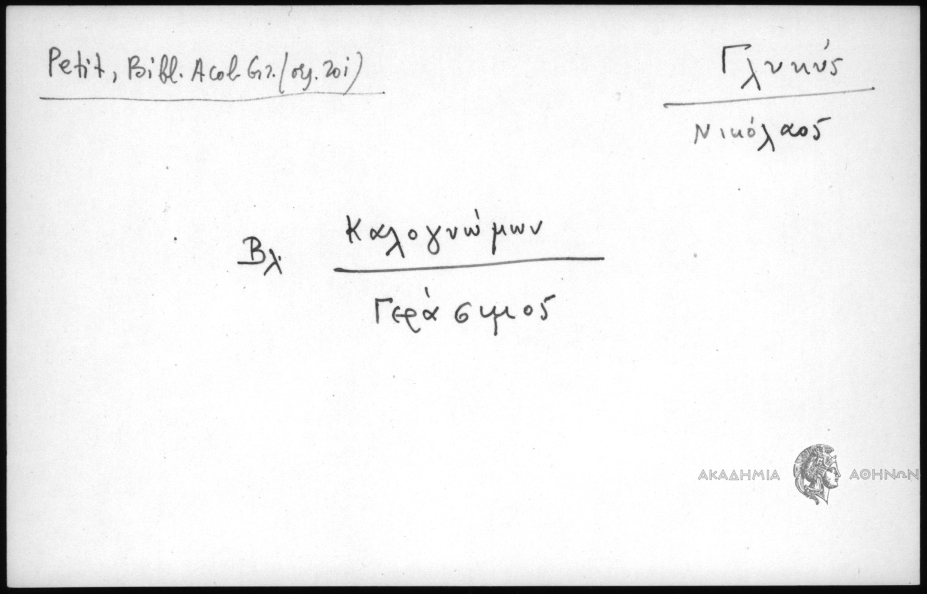 Petit, Bibl. Acol. Gr. (σγ. 201)
Γλυκύς
Νικόλαος
Βλ. Καλογνώμων
Γεράσιμος
ΑΚΑΔΗΜΙΑ ΑΘΗΝΩΝ